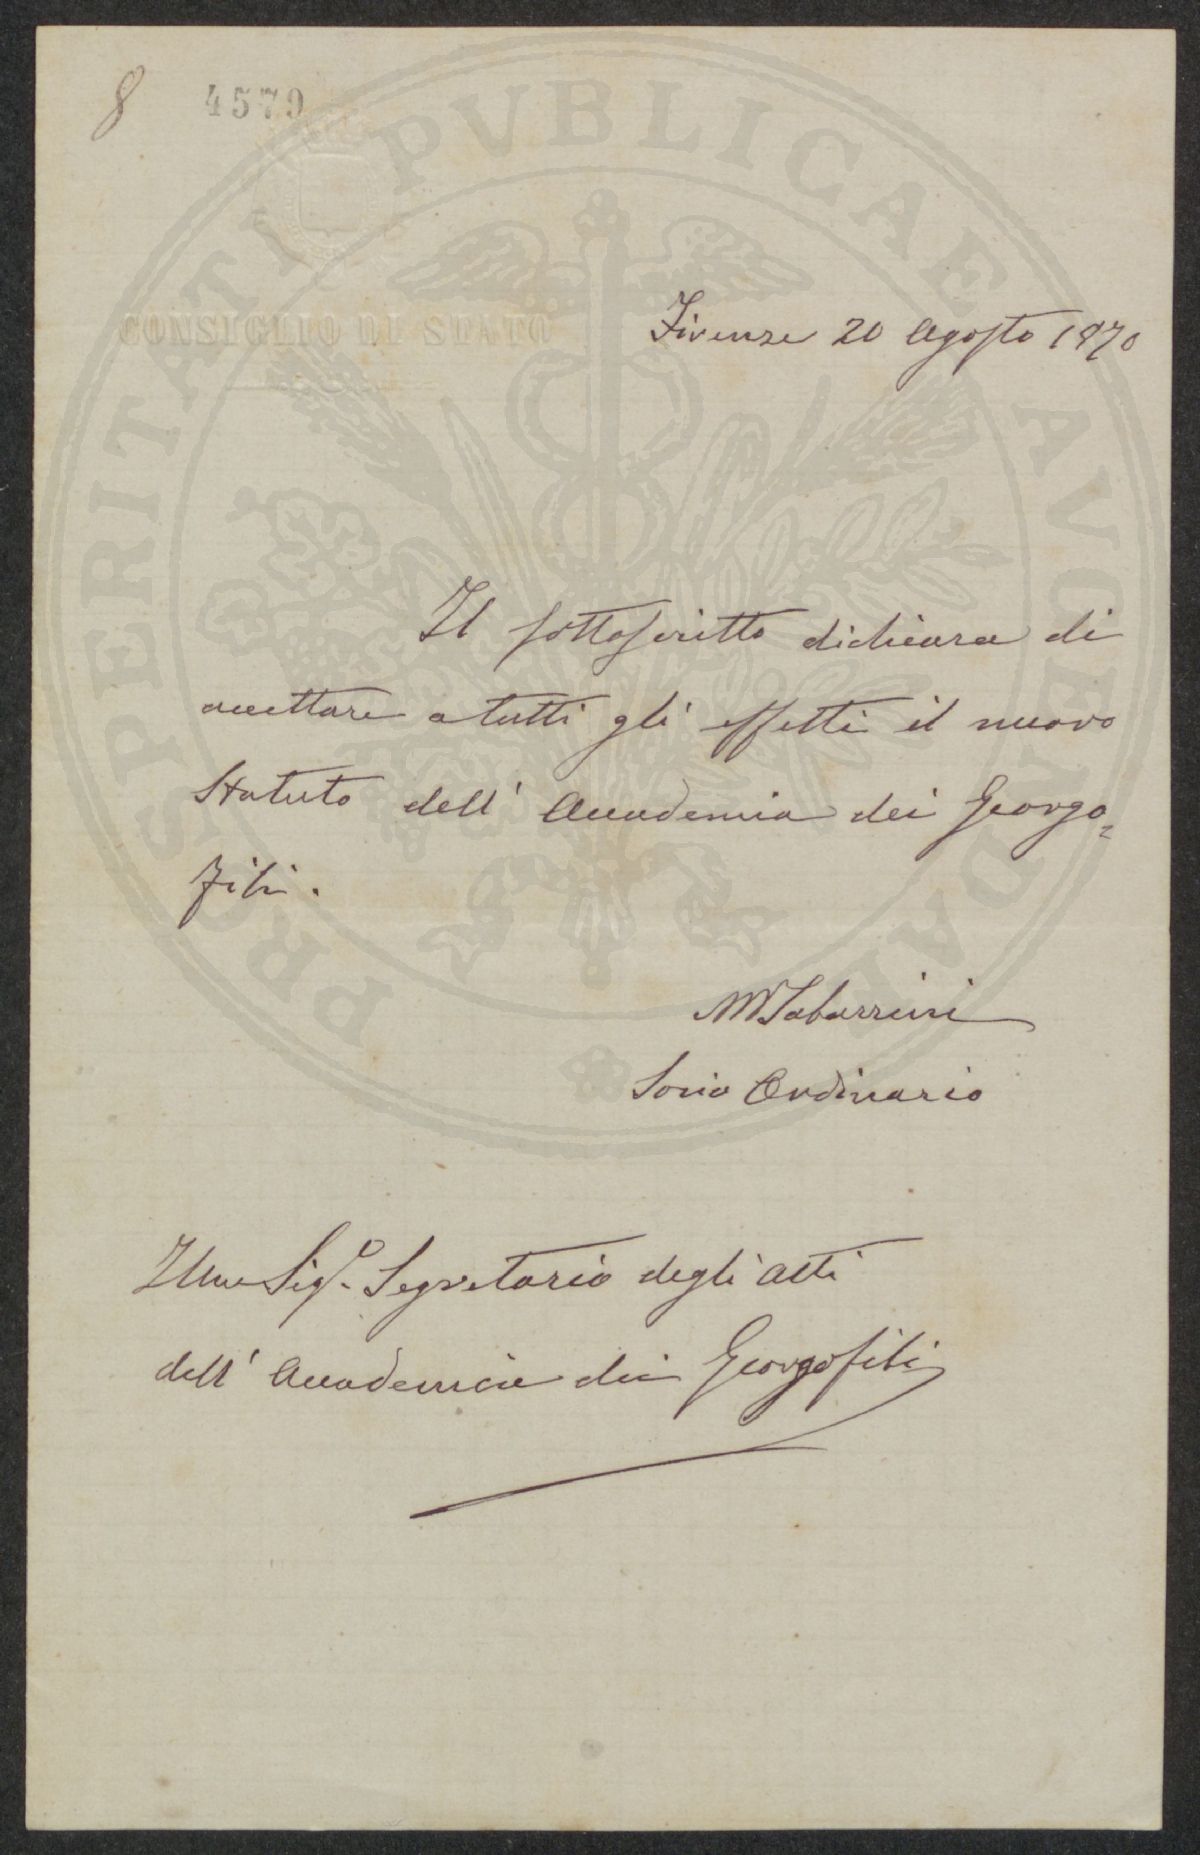 8 4579
CONSIGLIO DI STATO
PROSPERITATI PVBLICAE AVGENDAE
Firenze 20 Agosto 1870
Il sottoscritto dichiara di
accettare a tutti gli effetti il nuovo
Statuto dell' Accademia dei Georgo=
fili.
M Tabarrini
Socio Ordinario
Illmo Sigr. Segretario degli Atti
dell' Accademia dei Georgofili